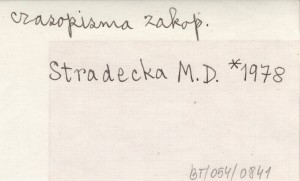 czasopisma zakop.
Stradecka M.D. *1978
BT/054/0841